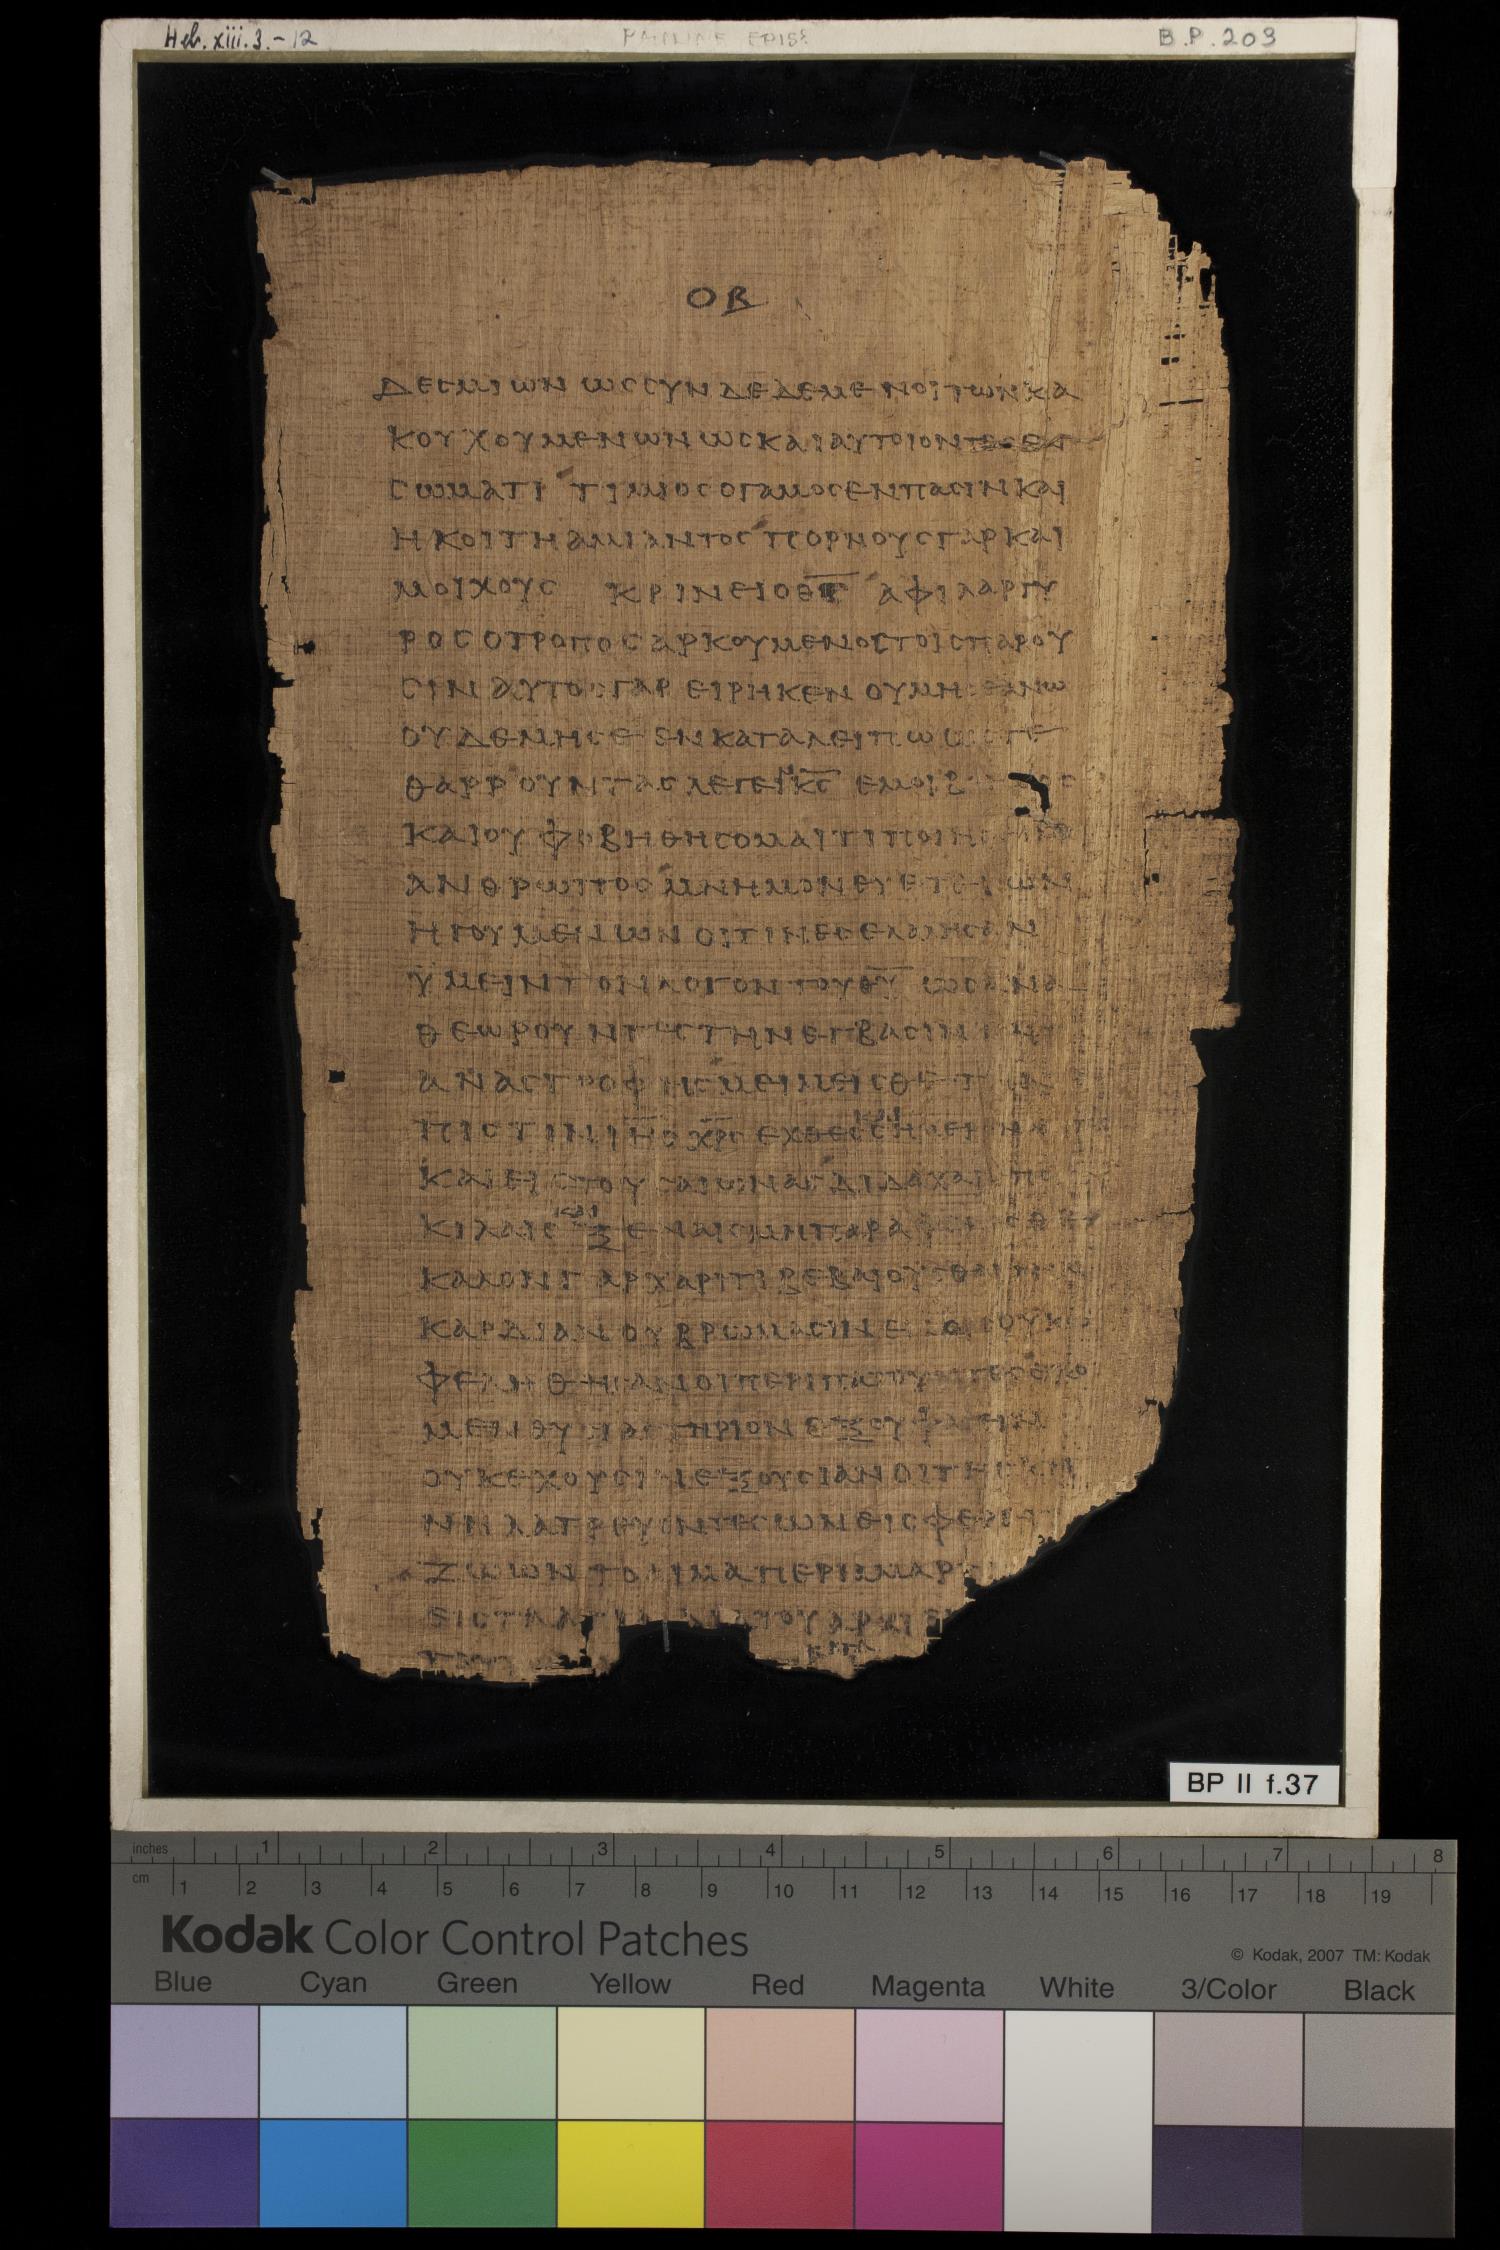 Heb. xiii. 3. - 12
B.P. 203
ΟΒ
ΔΕСΜΙωΝ ωССΥΝΔΕΔΕΜΕΝΟΙΤωΝΚΑ
ΚΟΥΧΟΥΜΕΝωΝωСΚΑΙΑΥΤΟΙΟΝΤΕС
СωΜΑΤΙ ΤΙΜΙΟСΟΓΑΜΟСΕΝΠΑСΙΝΚΑΙ
ΗΚΟΙΤΗΑΜΙΑΝΤΟСΠΟΡΝΟΥСΓΑΡΚΑΙ
ΜΟΙΧΟΥС ΚΡΙΝΕΙΟΘ̅С̅ ΑΦΙΛΑΡΓΥ
ΡΟСΟΤΡΟΠΟСΑΡΚΟΥΜΕΝΟСΤΟΙСΠΑΡΟΥ
СΙΝ ΑΥΤΟСΓΑΡ ΕΙΡΗΚΕΝ ΟΥΜΗСΕΑΝω
ΟΥΔΕΜΗСΕ ΕΝΚΑΤΑΛΕΙΠω
ΘΑΡΡΟΥΝΤΑСΛΕΓΕΙΚ̅С̅ ΕΜΟΙ
ΚΑΙΟΥΦΟΒΗΘΗСΟΜΑΙΤΙΠΟΙΗ
ΑΝΘΡωΠΟСΜΝΗΜΟΝΕΥΕΤΕΤωΝ
ΗΓΟΥΜΕΝωΝΟΙΤΙΝΕСΕΛΑΛΗСΑΝ
ΥΜΕΙΝΤΟΝΛΟΓΟΝΤΟΥΘ̅Υ̅ ωΝΑΝΑ
ΘΕωΡΟΥΝΤΕСΤΗΝΕΓΒΑСΙΝ
ΑΝΑСΤΡΟΦΗСΜΕΙΜΕΙСΘΕΤΗΝ
ΠΙСΤΙΝΙ̅Η̅С̅ Χ̅Ρ̅С̅ ΕΧΘΕС
ΚΑΙΕΙСΤΟΥСΑΙωΝΑСΔΙΔΑΧΑΙСΠΟΙ
ΚΙΛΑΙС ΚΑΙ ΞΕΝΑΙСΜΗΠΑΡΑ
ΚΑΛΟΝΓΑΡΧΑΡΙΤΙΒΕΒΑΙΟΥСΘΑΙΤΗΝ
ΚΑΡΔΙΑΝΟΥΒΡωΜΑСΙΝΕΝΟΙСΟΥΚω
ΦΕΛΗΘΗСΑΝΟΙΠΕΡΙΠΑΤΟΥΝΤΕСΕΧΟ
ΜΕΝΘΥСΙΑСΤΗΡΙΟΝΕΞΟΥΦΑΓΕΙΝ
ΟΥΚΕΧΟΥСΙΝΕΞΟΥСΙΑΝΟΙΤΗСΚΗ
ΝΗΛΑΤΡΕΥΟΝΤΕСωΝΕΙСΦΕΡΕΤ
ΖωωΝΤΟΑΙΜΑΠΕΡΙΑΜΑΡ
ΕΙСΤΑΑΓΙΑ ΔΙΑΤΟΥΑΡΧΙΕ
ΤΟΥΤ
BP II f.37
inches 1 2 3 4 5 6 7 8
cm 1 2 3 4 5 6 7 8 9 10 11 12 13 14 15 16 17 18 19
Kodak Color Control Patches
© Kodak, 2007 TM: Kodak
Blue Cyan Green Yellow Red Magenta White 3/Color Black